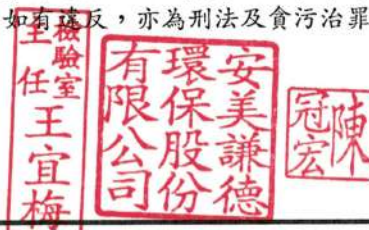 如有違反，亦為刑法及貪污治罪
檢驗室
主任王宜梅
安美謙德
環保股份
有限公司
陳
冠宏